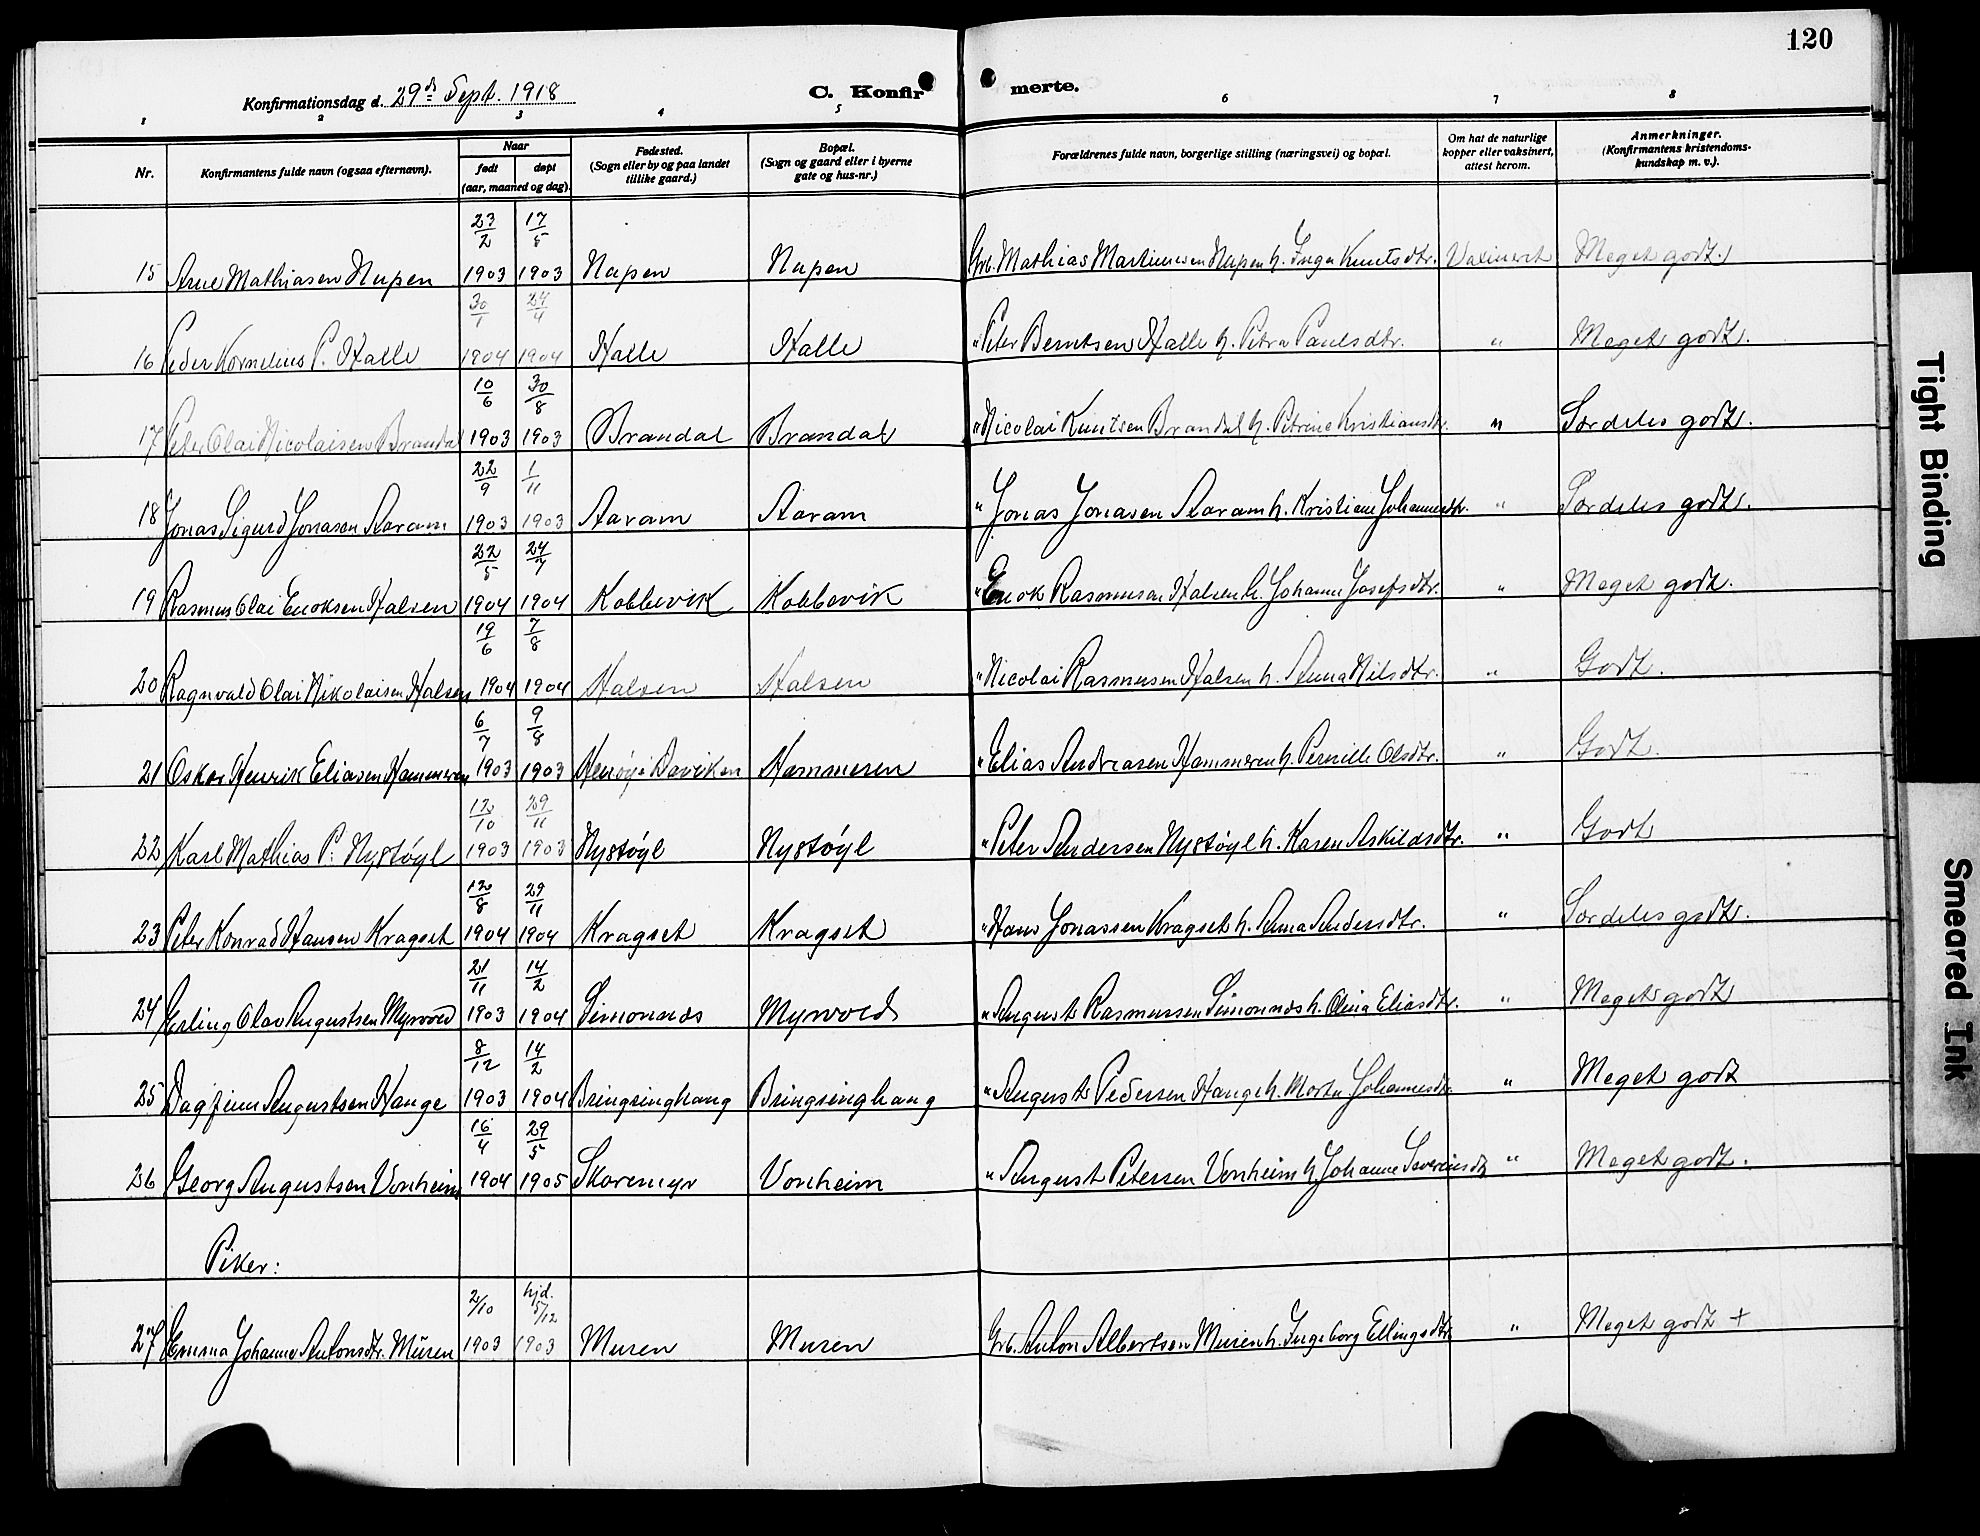 120
Konfirmationsdag d. 29de Sept. 1918 C. Konfirmerte.
1 2 3 4 5 6 7 8
Nr. Konfirmantens fulde navn (ogsaa efternavn). Naar født døpt (aar, maaned og dag). Fødested. (Sogn eller by og paa landet tillike gaard.) Bopæl. (Sogn og gaard eller i byerne gate og hus-nr.) Forældrenes fulde navn, borgerlige stilling (næringsvei) og bopæl. Om hat de naturlige kopper eller vaksinert, attest herom. Anmerkninger. (Konfirmantens kristendomskundskap m. v.).
15 Arne Mathiasen Nupen 23/2 1903 17/5 1903 Nupen Nupen Grb. Mathias Martinusen Nupen h. Inga Knutsdtr. Vaxinert Meget godt.
16 Peder Kornelius P. Halle 30/1 1904 24/4 1904 Halle Halle " Peter Berntsen Halle h. Petra Paulsdtr. " Meget godt.
17 Peter Olai Nicolaisen Brandal 10/6 1903 30/8 1903 Brandal Brandal " Nicolai Knutsen Brandal h. Petrine Kristiansdtr. " Særdeles godt.
18 Jonas Sigurd Jonasen Aaram 22/9 1903 1/11 1903 Aaram Aaram " Jonas Jonasen Aaram h. Kristiane Johannesdtr. " Særdeles godt.
19 Rasmus Olai Enoksen Halsen 22/5 1904 24/7 1904 Kobbevik Kobbevik " Enok Rasmusen Halsen h. Johanne Josefsdtr. " Meget godt.
20 Ragnvald Olai Nikolaisen Halsen 19/6 1904 7/8 1904 Halsen Halsen " Nicolai Rasmusen Halsen h. Anna Nilsdtr. " Godt.
21 Oskar Henrik Eliasen Hammeren 6/7 1903 9/8 1903 Henøy i Daviken Hammeren " Elias Andreasen Hammeren h. Pernille Olsdtr. " Godt.
22 Karl Mathias P. Nystøyl 12/10 1903 29/11 1903 Nystøyl Nystøyl " Peter Andersen Nystøyl h. Karen Askildsdtr. " Godt
23 Peter Konrad Hansen Kragset 12/8 1904 29/11 1904 Kragset Kragset " Hans Jonassen Kragset h. Anna Andersdtr. " Særdeles godt.
24 Erling Olav Augustsen Myrvold 21/11 1903 14/2 1904 Simonnes Myrvold " August Rasmussen Simonnes h. Olina Eliasdtr. " Meget godt
25 Dagfinn Augustsen Hauge 8/12 1903 14/2 1904 Bringsinghaug Bringsinghaug " August Pedersen Hauge h. Marta Johannesdtr. " Meget godt
26 Georg Augustsen Vonheim 16/4 1904 29/5 1905 Skoremyr Vonheim " August Petersen Vonheim h. Johanne Severinsdtr " Meget godt.
Piker:
27 Emma Johanne Antonsdtr. Müren 2/10 1903 hjd. 5/12 1903 Muren Muren Grb. Anton Albertsen Muren h. Ingeborg Ellingsdtr. " Meget godt +
Tight Binding
Smeared Ink